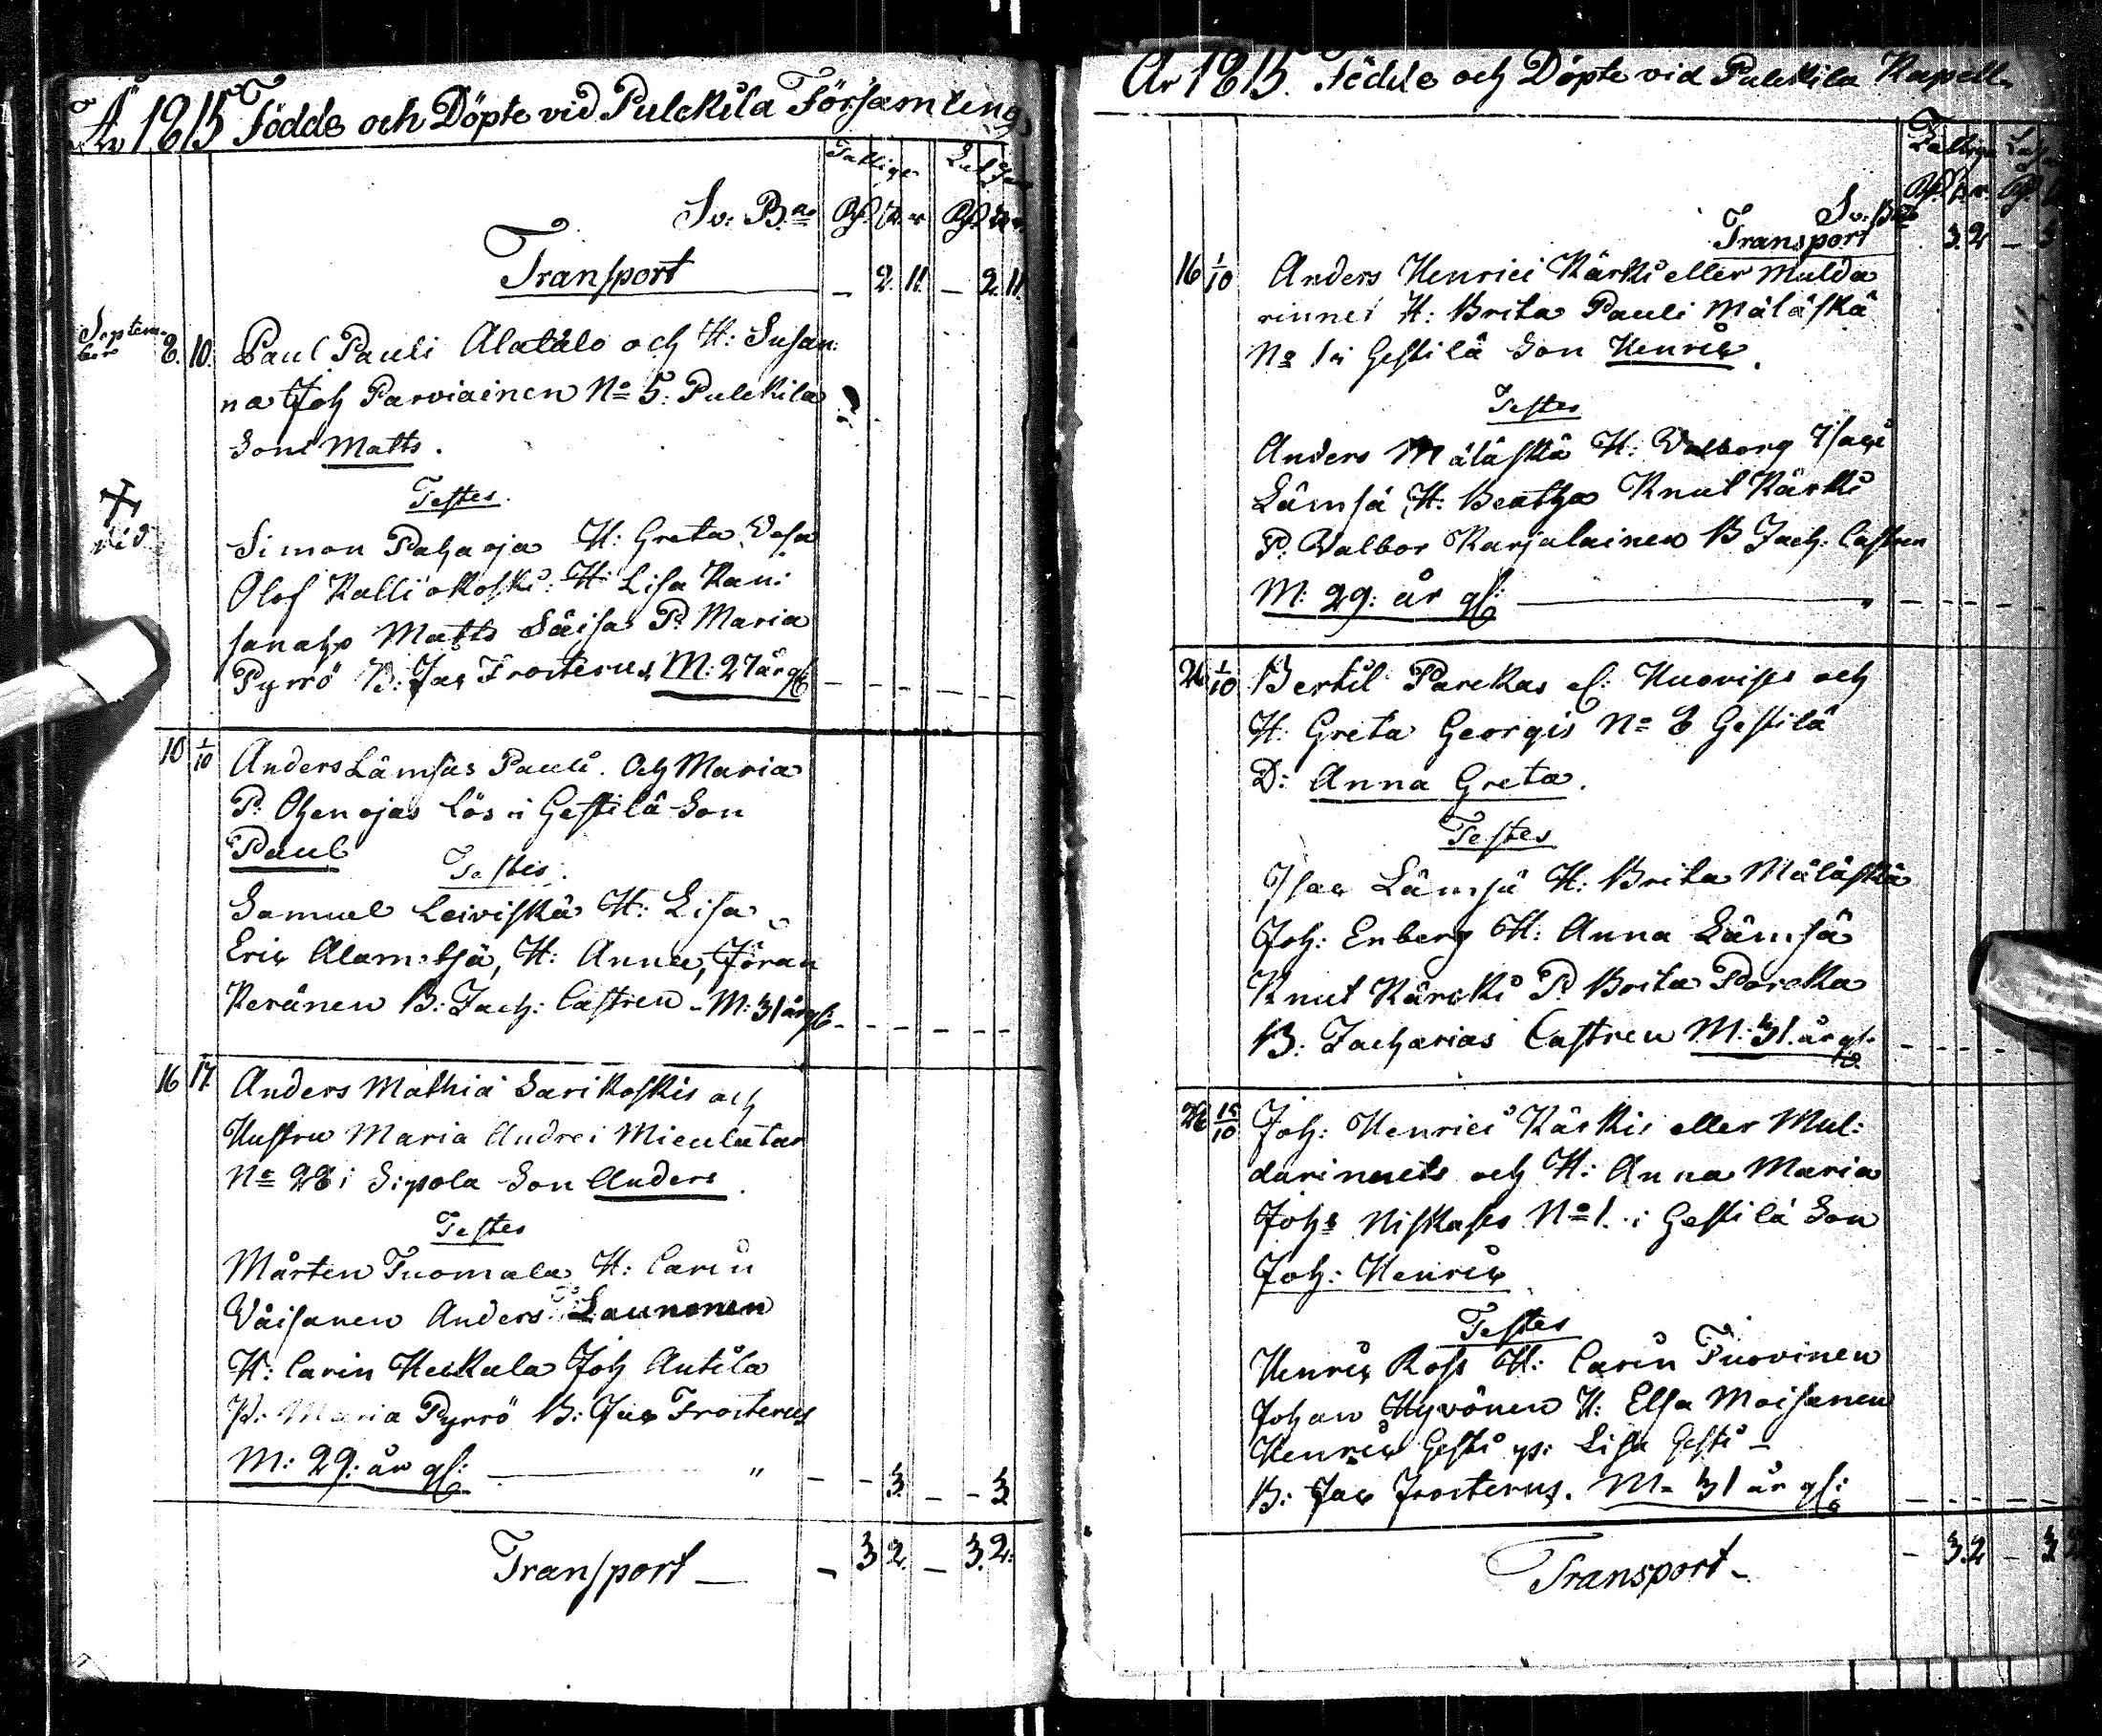 År 1815 Födde och Döpte vid Pulckila Församling
Fattiga Lutfar
Sv: B.
Transport — 2. 11. — 2. 11.
Septem-
ber 8. 10. Paul Pauli Alatalo och H: Susan:
na Joh Parviainen No 5. Pulckila
Son Matts.
Testes.
Simon Pahaoja H: Greta Vasa
Olof Kalliokoski: H: Lisa Kani
sanaho Matts Säisä P. Maria
Pyrrö B: Jac Frosterus M: 27 år gl:
10 1/10 Anders Lämsäs Pauli. och Maria
P. Ohenojas lös i Gestilä Son
Paul
Testes.
Samuel Leiviskä H: Lisa
Eric Alamettjä, H: Anna, Jöran
Keränen B: Zach: Castren - M: 31 år gl: -
16 17. Anders Mathiä Sarikoskis och
Hustru Maria Andrei Miculatar
No 28 i Sipola Son Anders.
Testes
Mårten Tuomala H: Carin
Väisänen Anders Launonen
H: Carin Heikkala Joh Antila
P: Maria Pyrrö B: Jac Frosterus
M: 29: år gl: — " — - 3. — - 3
Transport — — 3 2. — 3. 2.
År 1815. Födde och Döpte vid Pulckila Kapell.
Fattiga
Sv: B.
Transport 3. 2 — 3
16 1/10 Anders Henrici Kärki eller Mulda
rinnes H: Brita Pauli Mäläskä
No 1 i Gestilä Son Henric.
Testes
Anders Mäläskä H: Valborg Isaci
Lämsä H: Beatha Knut Kärki
P. Valbor Karjalainen B Zach: Castren
M: 29: år gl: —
26 1/10 Bertil Parckas el: Huovises och
H: Greta Georgis No 8 Gestilä
D: Anna Greta.
Testes
Isac Lämsä H: Brita Mäläskä
Joh: Enberg H: Anna Lämsä
Knut Kärcki P. Brita Parcka
B: Zacharias Castren M: 31. år gl.
26 15/10 Joh: Henrici Kärkis eller Mul:
darinnets och H: Anna Maria
Johs Niskases No 1. i Gestilä Son
Joh: Henric
Testes
Henric Ross H: Carin Tuovinen
Johan Hyvönen H: Elsa Moisanen
Henric Gesti p: Lisa Gesti —
B: Jac Frosterus. M - 31 år gl:
Transport — — 3. 2 — 3 2